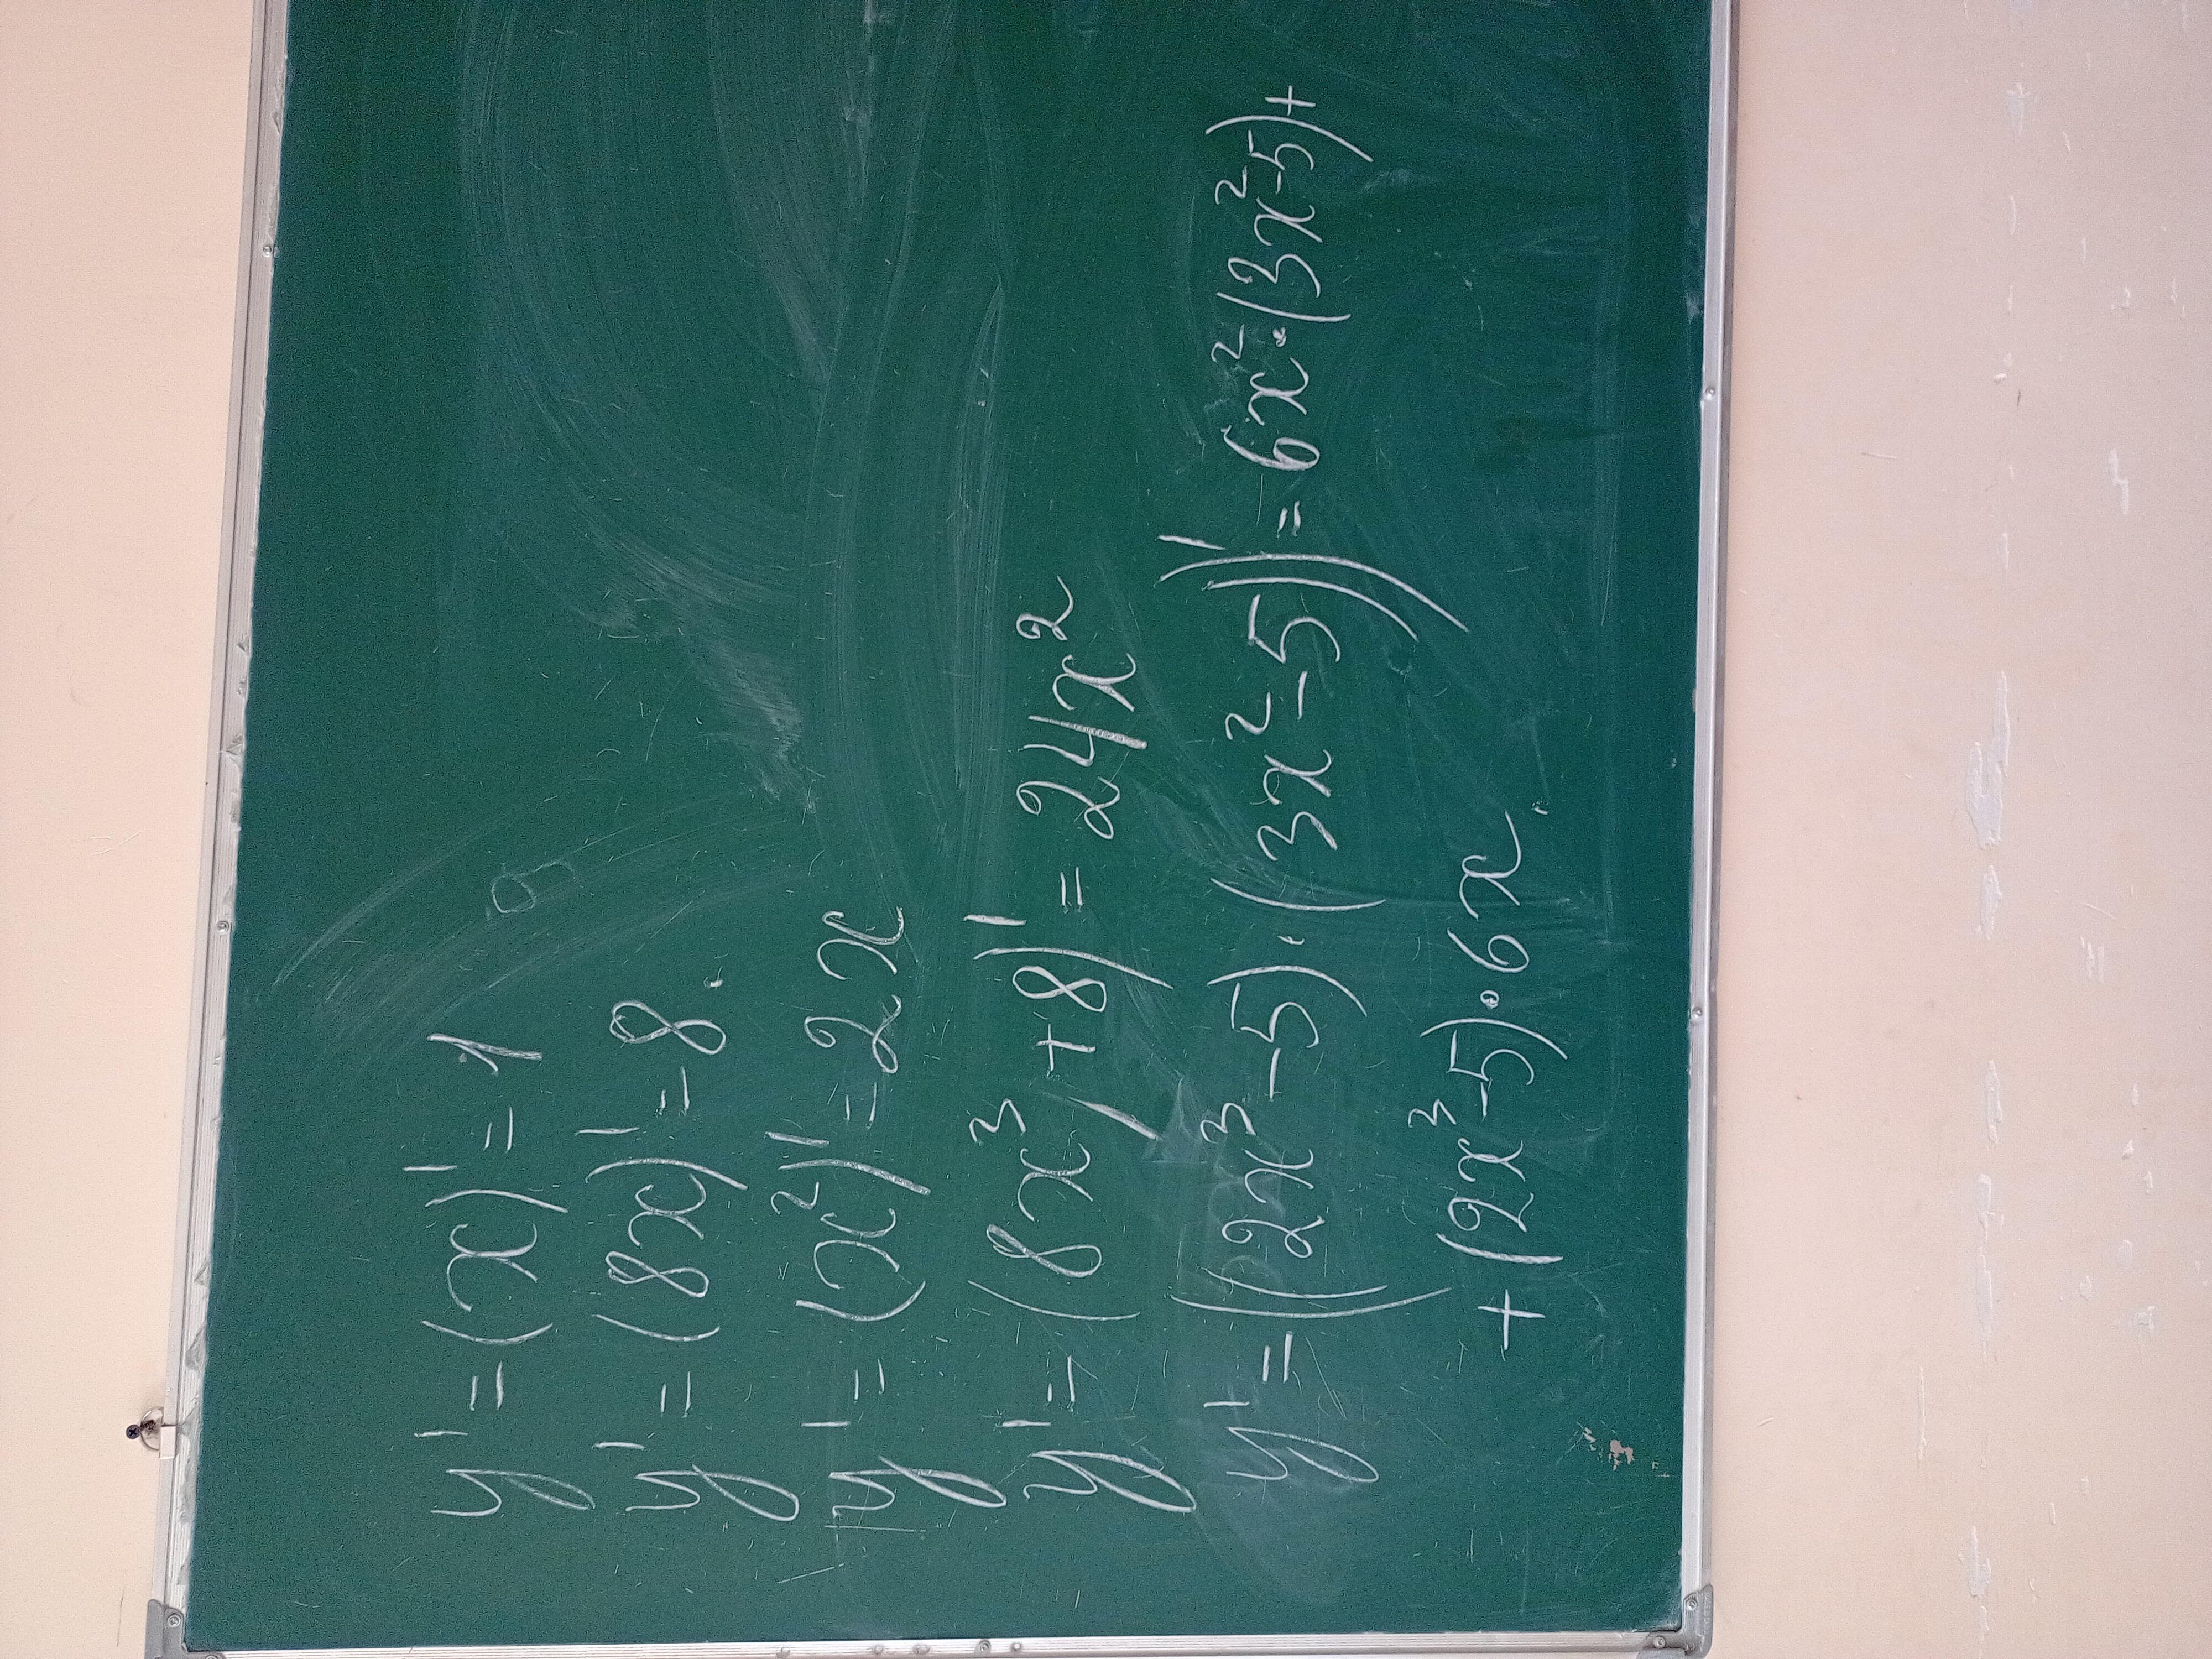 y' = (x)' = 1
y' = (8x)' = 8.
y' = (x²)' = 2x
y' = (8x³ + 8)' = 24x²
y' = ((2x³ - 5) · (3x² - 5))' = 6x² · (3x² - 5) +
+ (2x³ - 5) · 6x.